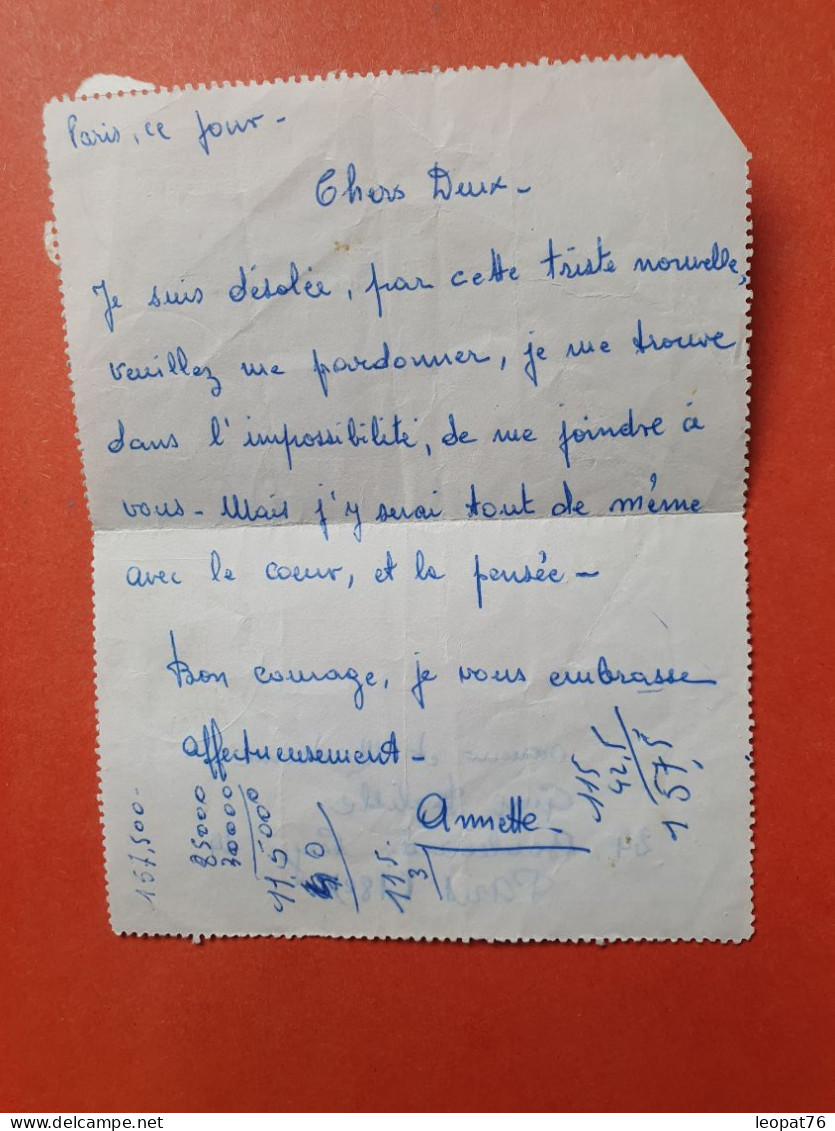 Paris, ce jour -
Chers Deux -
Je suis désolée, par cette triste nouvelle,
veuillez me pardonner, je me trouve
dans l'impossibilité, de me joindre à
vous - Mais j'y serai tout de même
avec le coeur, et la pensée -
Bon courage, je vous embrasse
affectueusement -
Annette.
157,500-
85000
30000
115000
115.
3
115
42,5
157,5
Paris
delcampe.net
leopat76